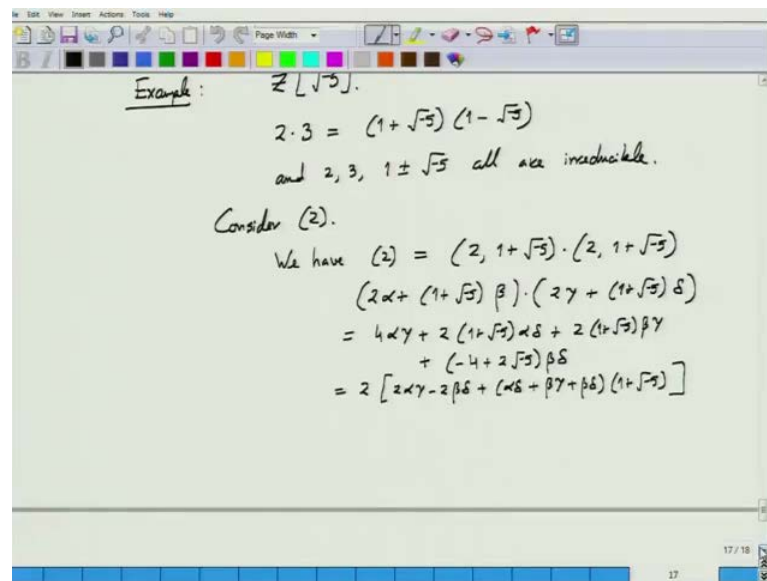 Edit View Insert Actions Tools Help
Page Width
B I
Example : Z[√-5].
2·3 = (1+√-5) (1-√-5)
and 2, 3, 1±√-5 all are irreducible.
Consider (2).
We have (2) = (2, 1+√-5)·(2, 1+√-5)
(2α+ (1+√-5) β)·(2γ + (1+√-5) δ)
= 4αγ + 2 (1+√-5) αδ + 2 (1+√-5) βγ
+ (-4+2√-5) βδ
= 2 [2αγ-2βδ + (αδ + βγ+βδ) (1+√-5)]
17 / 18
17